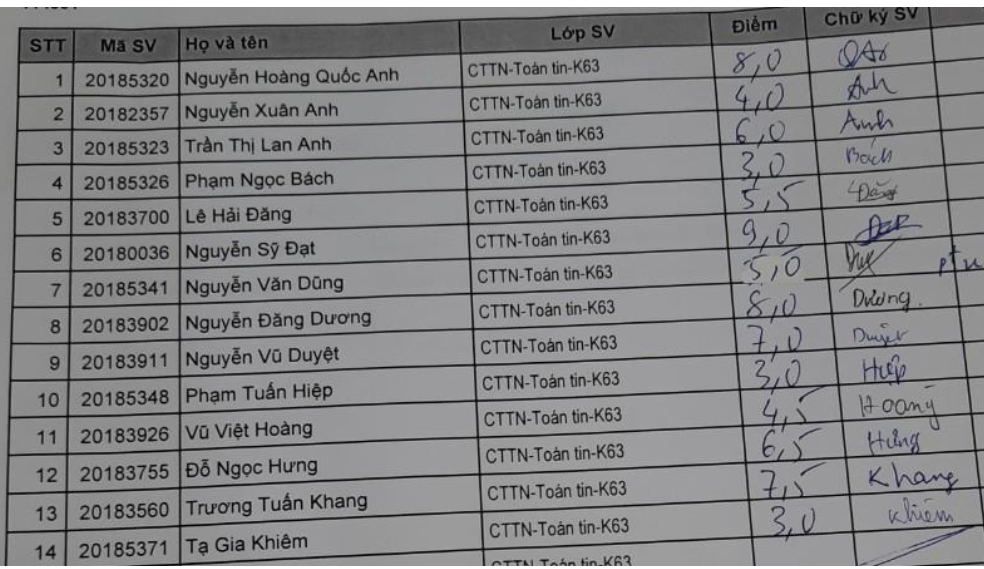 STT Mã SV Họ và tên Lớp SV Điểm Chữ ký SV
1 20185320 Nguyễn Hoàng Quốc Anh CTTN-Toán tin-K63 8,0
2 20182357 Nguyễn Xuân Anh CTTN-Toán tin-K63 4,0 Anh
3 20185323 Trần Thị Lan Anh CTTN-Toán tin-K63 6,0 Anh
4 20185326 Phạm Ngọc Bách CTTN-Toán tin-K63 3,0 Bách
5 20183700 Lê Hải Đăng CTTN-Toán tin-K63 5,5 Đăng
6 20180036 Nguyễn Sỹ Đạt CTTN-Toán tin-K63 9,0
7 20185341 Nguyễn Văn Dũng CTTN-Toán tin-K63 5,0
8 20183902 Nguyễn Đăng Dương CTTN-Toán tin-K63 8,0 Dương
9 20183911 Nguyễn Vũ Duyệt CTTN-Toán tin-K63 7,0 Duyệt
10 20185348 Phạm Tuấn Hiệp CTTN-Toán tin-K63 3,0 Hiệp
11 20183926 Vũ Việt Hoàng CTTN-Toán tin-K63 4,5 Hoàng
12 20183755 Đỗ Ngọc Hưng CTTN-Toán tin-K63 6,5 Hưng
13 20183560 Trương Tuấn Khang CTTN-Toán tin-K63 7,5 Khang
14 20185371 Tạ Gia Khiêm CTTN-Toán tin-K63 3,0 Khiêm
CTTN-Toán tin-K63